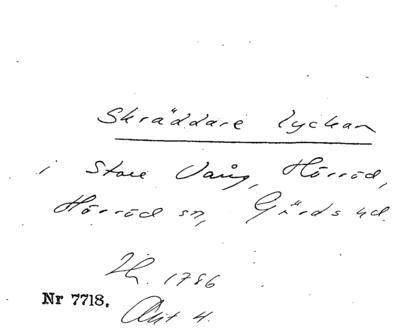 Skräddare lyckan
i Store Vång, Hörröd,
Hörröd sn, Gärds hd.
Lh. 1786
Nr 7718.
Akt 4.